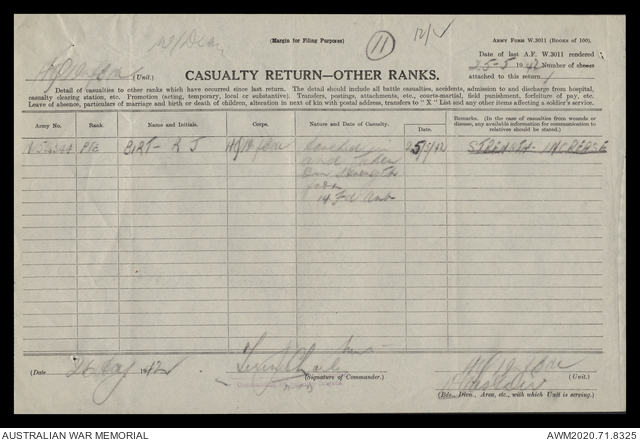 (Margin for Filing Purposes)
11
12/V
ARMY FORM W.3011 (BOOKS OF 100).
Date of last A.F. W.3011 rendered
25-5 1942 Number of sheets
attached to this return 1
(Unit.)
CASUALTY RETURN—OTHER RANKS.
Detail of casualties to other ranks which have occurred since last return. The detail should include all battle casualties, accidents, admission to and discharge from hospital,
casualty clearing station, etc. Promotion (acting, temporary, local or substantive). Transfers, postings, attachments, etc., courts-martial, field punishment, forfeiture of pay, etc.
Leave of absence, particulars of marriage and birth or death of children, alteration in next of kin with postal address, transfers to "X" List and any other items affecting a soldier's service.
Army No. Rank. Name and Initials. Corps. Nature and Date of Casualty. Date. Remarks. (In the case of casualties from wounds or disease, any available information for communication to relatives should be stated.)
PTE BIRT- R J 25/5/42 STRENGTH- INCREASE
and taken
on strength
from
14 Fd Amb
(Date 26 May 1942
(Signature of Commander.)
(Unit.)
(Bde., Divn., Area, etc., with which Unit is serving.)
AUSTRALIAN WAR MEMORIAL
AWM2020.71.8325